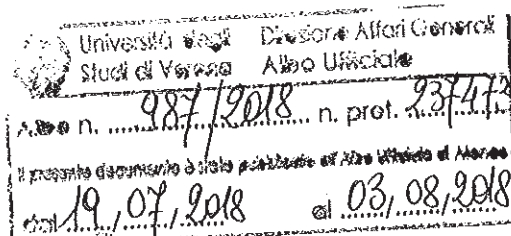 Università degli Divisione Affari Generali
Studi di Verona Albo Ufficiale
Albo n. 987/2018 n. prot. 237473
Il presente documento è stato pubblicato all'Albo Ufficiale di Ateneo
dal 19,07,2018 al 03,08,2018